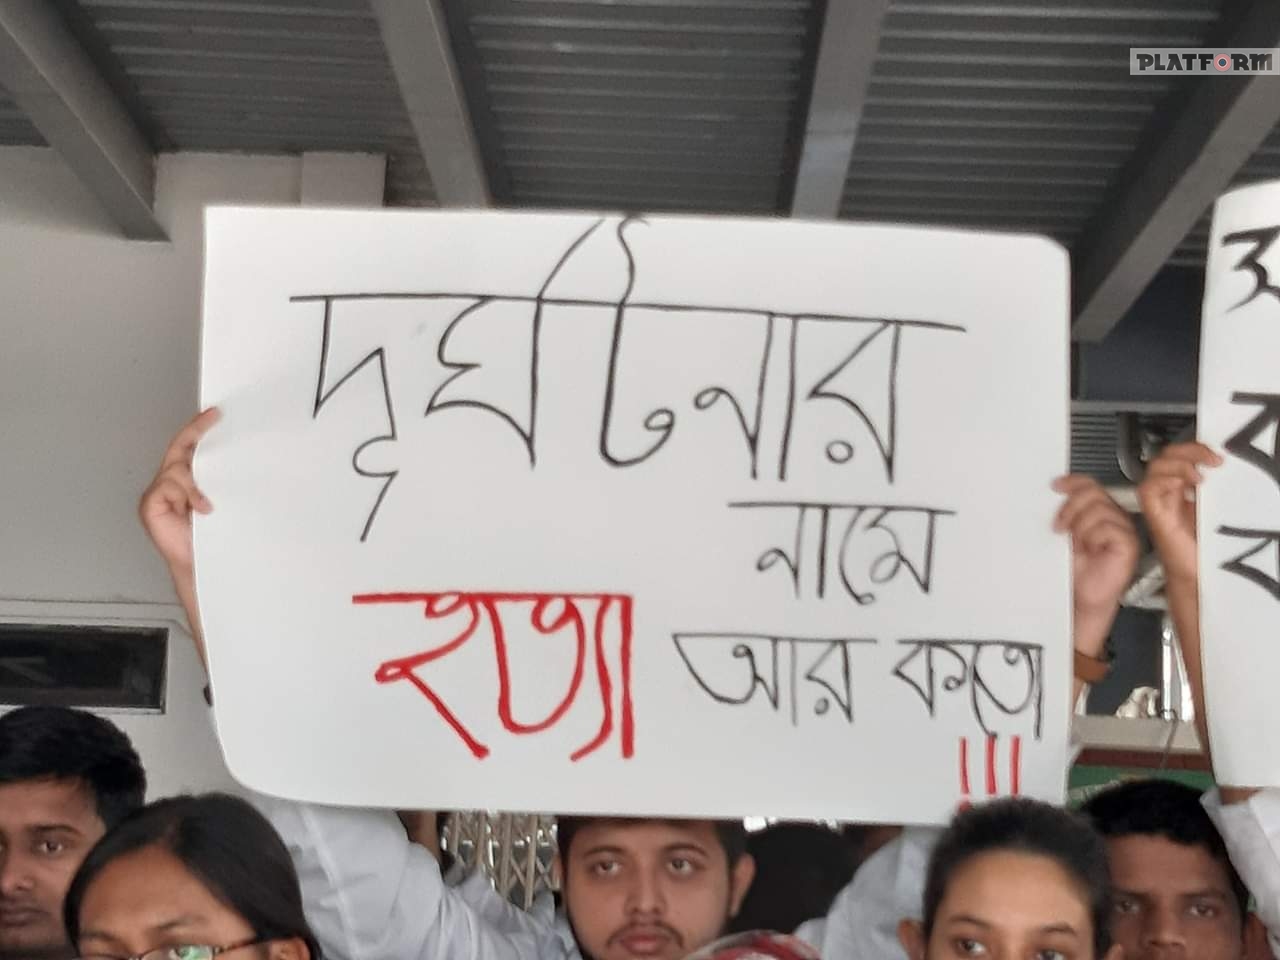 PLATFORM
দূর্ঘটনার
নামে
হত্যা আর কতো
!!!